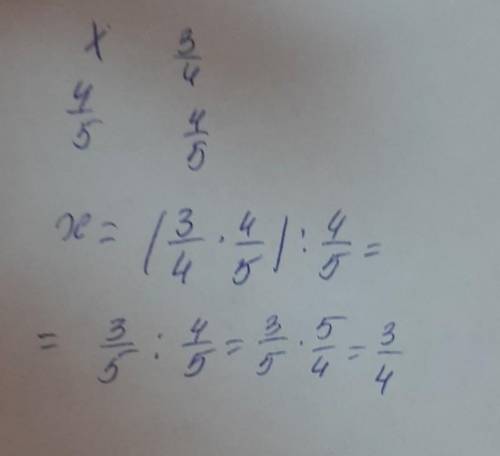 x 3/4
4/5 4/5
x = (3/4 · 4/5) : 4/5 =
= 3/5 : 4/5 = 3/5 · 5/4 = 3/4